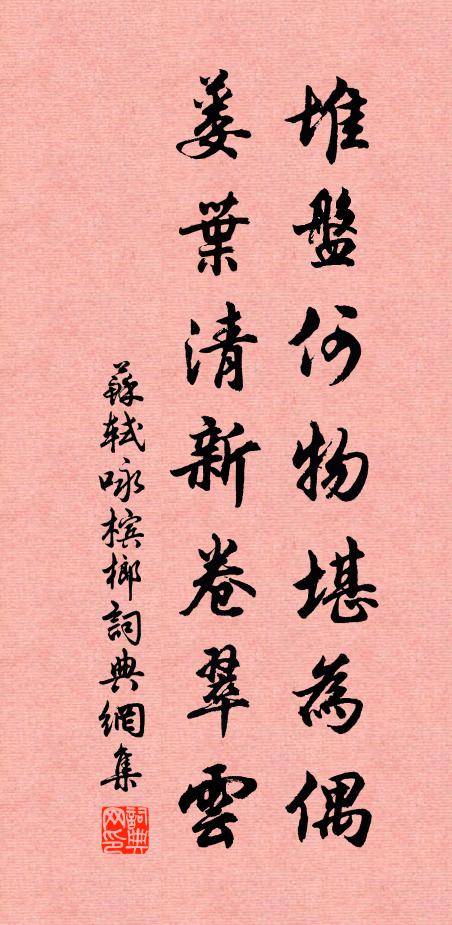 堆盤何物堪為偶
蒌葉清新卷翠雲
蘇軾咏槟榔詞典網集
詞典网印